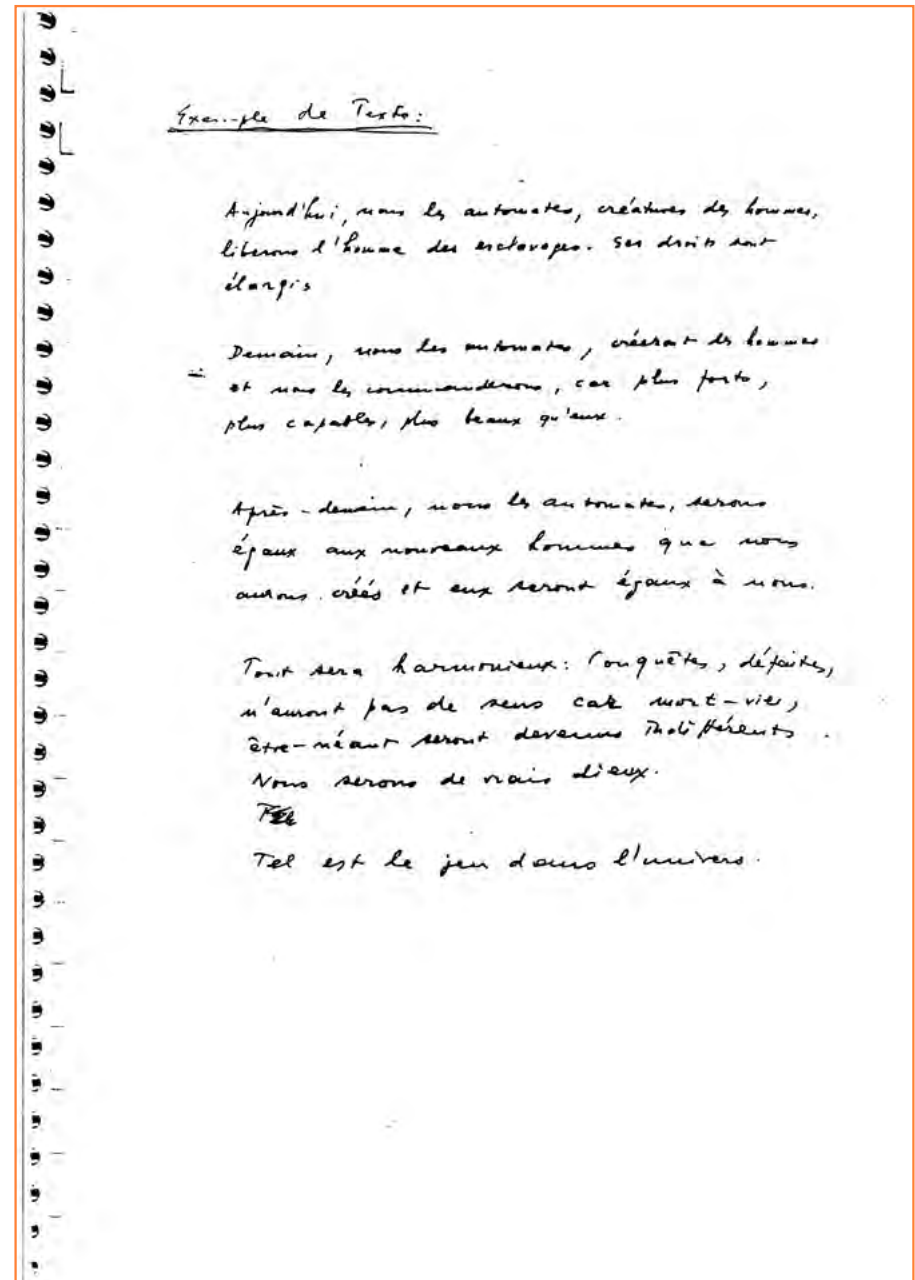 Exemple de Texte:
Aujourd'hui, nous les automates, créatures des hommes,
liberons l'homme des esclavages. Ses droits sont
élargis
Demain, nous les automates, créeront des hommes
et nous les commanderons, car plus forts,
plus capables, plus beaux qu'eux.
Après-demain, nous les automates, serons
égaux aux nouveaux hommes que nous
aurons créés et eux seront égaux à nous.
Tout sera harmonieux: Conquêtes, défaites,
n'auront pas de sens car mort-vies,
être-néant seront devenus indifférents.
Nous serons de vrais dieux.
Tel est le jeu dans l'univers.